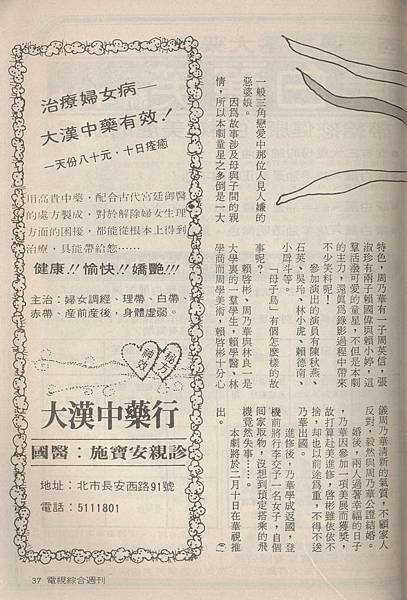 一般三角戀愛中那位人見人嫌的
惡婆娘。
因爲故事涉及母與子間的親
情，所以本劇童星之多倒是一大
特色，周乃華有一子周英信，張
淑珍有兩子賴國偉與賴小婷，這
羣活潑可愛的童星，不但是本劇
的主力，還眞爲錄影過程中帶來
不少笑料呢！
參加演出的演員有陳秋燕、
石英、吳玲、林小虎、賴德南、
小戽斗等。
「母子鳥」有個怎麼樣的故
事呢？
賴啓彬、周乃華與林良一是
大學裏的一羣學生，賴學醫、林
學商而周學美術，賴啓彬十分心
儀周乃華清新的氣質，不顧家人
反對，毅然與周乃華公證結婚。
婚後，兩人過著幸福的日子
，乃華因參加一項美展而獲獎，
故打算赴美進修，啓彬雖依依不
捨，却也以前途爲重，不得不送
乃華出國。
進修後，乃華學成返國，登
機前將行李交予一名女子，自個
回家取物，沒想到預定搭乘的飛
機竟然失事……。
本劇將於二月十日在華視推
出。
治療婦女病—
大漢中藥有效！
一天份八十元．十日痊癒
用高貴中藥，配合古代宮廷御醫
的處方製成，對於解除婦女生理
方面的困擾，都能從根本上得到
治療，具能帶給您……
健康!! 愉快!! 嬌艷!!!
主治：婦女調經、理帶、白帶、
赤帶、產前產後、身體虛弱。
秘方
神效
大漢中藥行
國醫：施寶安親診
地址：北市長安西路91號
電話：5111801
37 電視綜合週刊